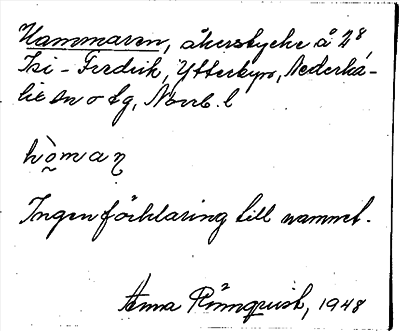 Hammaren, åkerstycke å 2⁸,
Isi-Fredrik, Ytterbyn, Nederka-
lix sn o tg, Norrb. l
hòman
Ingen förklaring till namnet.
Anna Rönnquist, 1948